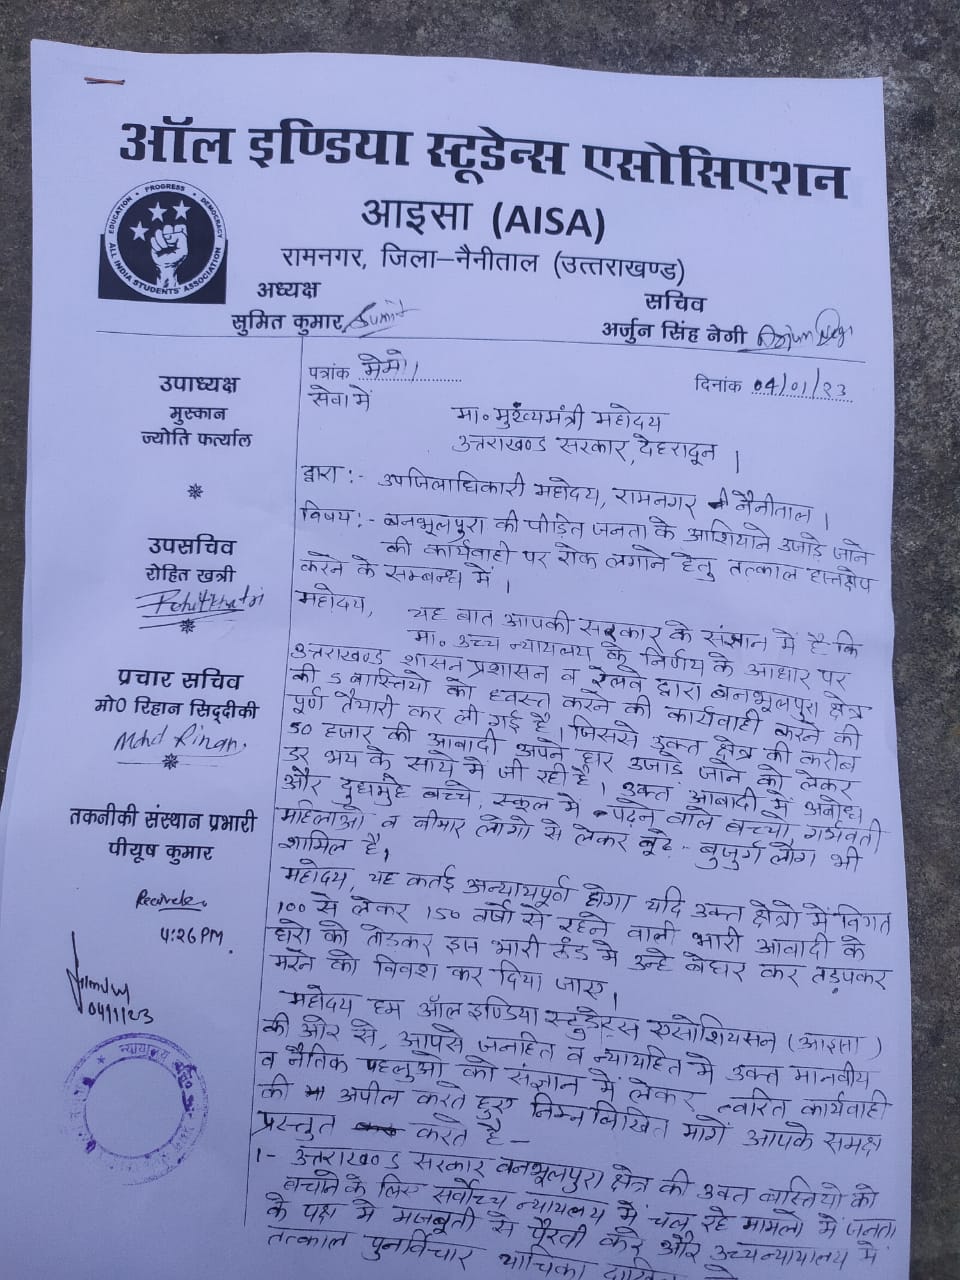 ऑल इण्डिया स्टूडेन्स एसोसिएशन
आइसा (AISA)
रामनगर, जिला–नैनीताल (उत्तराखण्ड)
EDUCATION • PROGRESS • DEMOCRACY
ALL INDIA STUDENTS' ASSOCIATION
अध्यक्ष
सुमित कुमार Sumit
सचिव
अर्जुन सिंह नेगी Arjun Negi
उपाध्यक्ष
मुस्कान
ज्योति फर्त्याल
उपसचिव
रोहित खत्री
Rohit Khatri
प्रचार सचिव
मो0 रिहान सिद्दीकी
Mohd Rihan
तकनीकी संस्थान प्रभारी
पीयूष कुमार
Received
4:26 PM
04/1/23
न्यायालय
पत्रांक मेमो।
दिनांक 04/01/23
सेवा में
मा॰ मुख्यमंत्री महोदय
उत्तराखण्ड सरकार, देहरादून।
द्वारा:- उपजिलाधिकारी महोदय, रामनगर नैनीताल।
विषय:- बनभूलपुरा की पीड़ित जनता के आशियाने उजाड़े जाने
की कार्यवाही पर रोक लगाने हेतु तत्काल हस्तक्षेप
करने के सम्बन्ध में।
महोदय,
यह बात आपकी सरकार के संज्ञान में है कि
मा. उच्च न्यायलय के निर्णय के आधार पर
उत्तराखण्ड शासन प्रशासन व रेलवे द्वारा बनभूलपुरा क्षेत्र
की 5 बास्तियों को ध्वस्त करने की कार्यवाही करने की
पूर्ण तैयारी कर ली गई है। जिससे उक्त क्षेत्र की करीब
50 हजार की आबादी अपने घर उजाड़े जाने को लेकर
डर भय के साये में जी रही है। उक्त आबादी में अबोध
और दुधमुहे बच्चे, स्कूल में पढ़ने वाले बच्चो, गर्भवती
महिलाओं व बीमार लोगो से लेकर बूढ़े - बुजुर्ग लोग भी
शामिल है।
महोदय, यह कतई अन्यायपूर्ण होगा यदि उक्त क्षेत्रो में विगत
100 से लेकर 150 वर्षो से रहने वाली भारी आवादी के
घरो को तोड़कर इस भारी ठंड मे उन्हे बेघर कर तड़पकर
मरने को विवश कर दिया जाए।
महोदय हम ऑल इण्डिया स्टुडेंट्स एसोशियसन (आइसा)
की ओर से, आपसे जनहित व न्यायहित मे उक्त मानवीय
व नैतिक पहलुओ को संज्ञान में लेकर त्वरित कार्यवाही
की अपील करते हुए निम्नलिखित मांगें आपके समक्ष
प्रस्तुत करते है –
1- उत्तराखण्ड सरकार वनभूलपुरा क्षेत्र की उक्त बास्तियो को
बचाने के लिए सर्वोच्च न्यायलय में चल रहे मामलो में जनता
के पक्ष मे मजबूती से पैरवी करे और उच्च न्यायालय में
तत्काल पुनर्विचार याचिका दाखिल